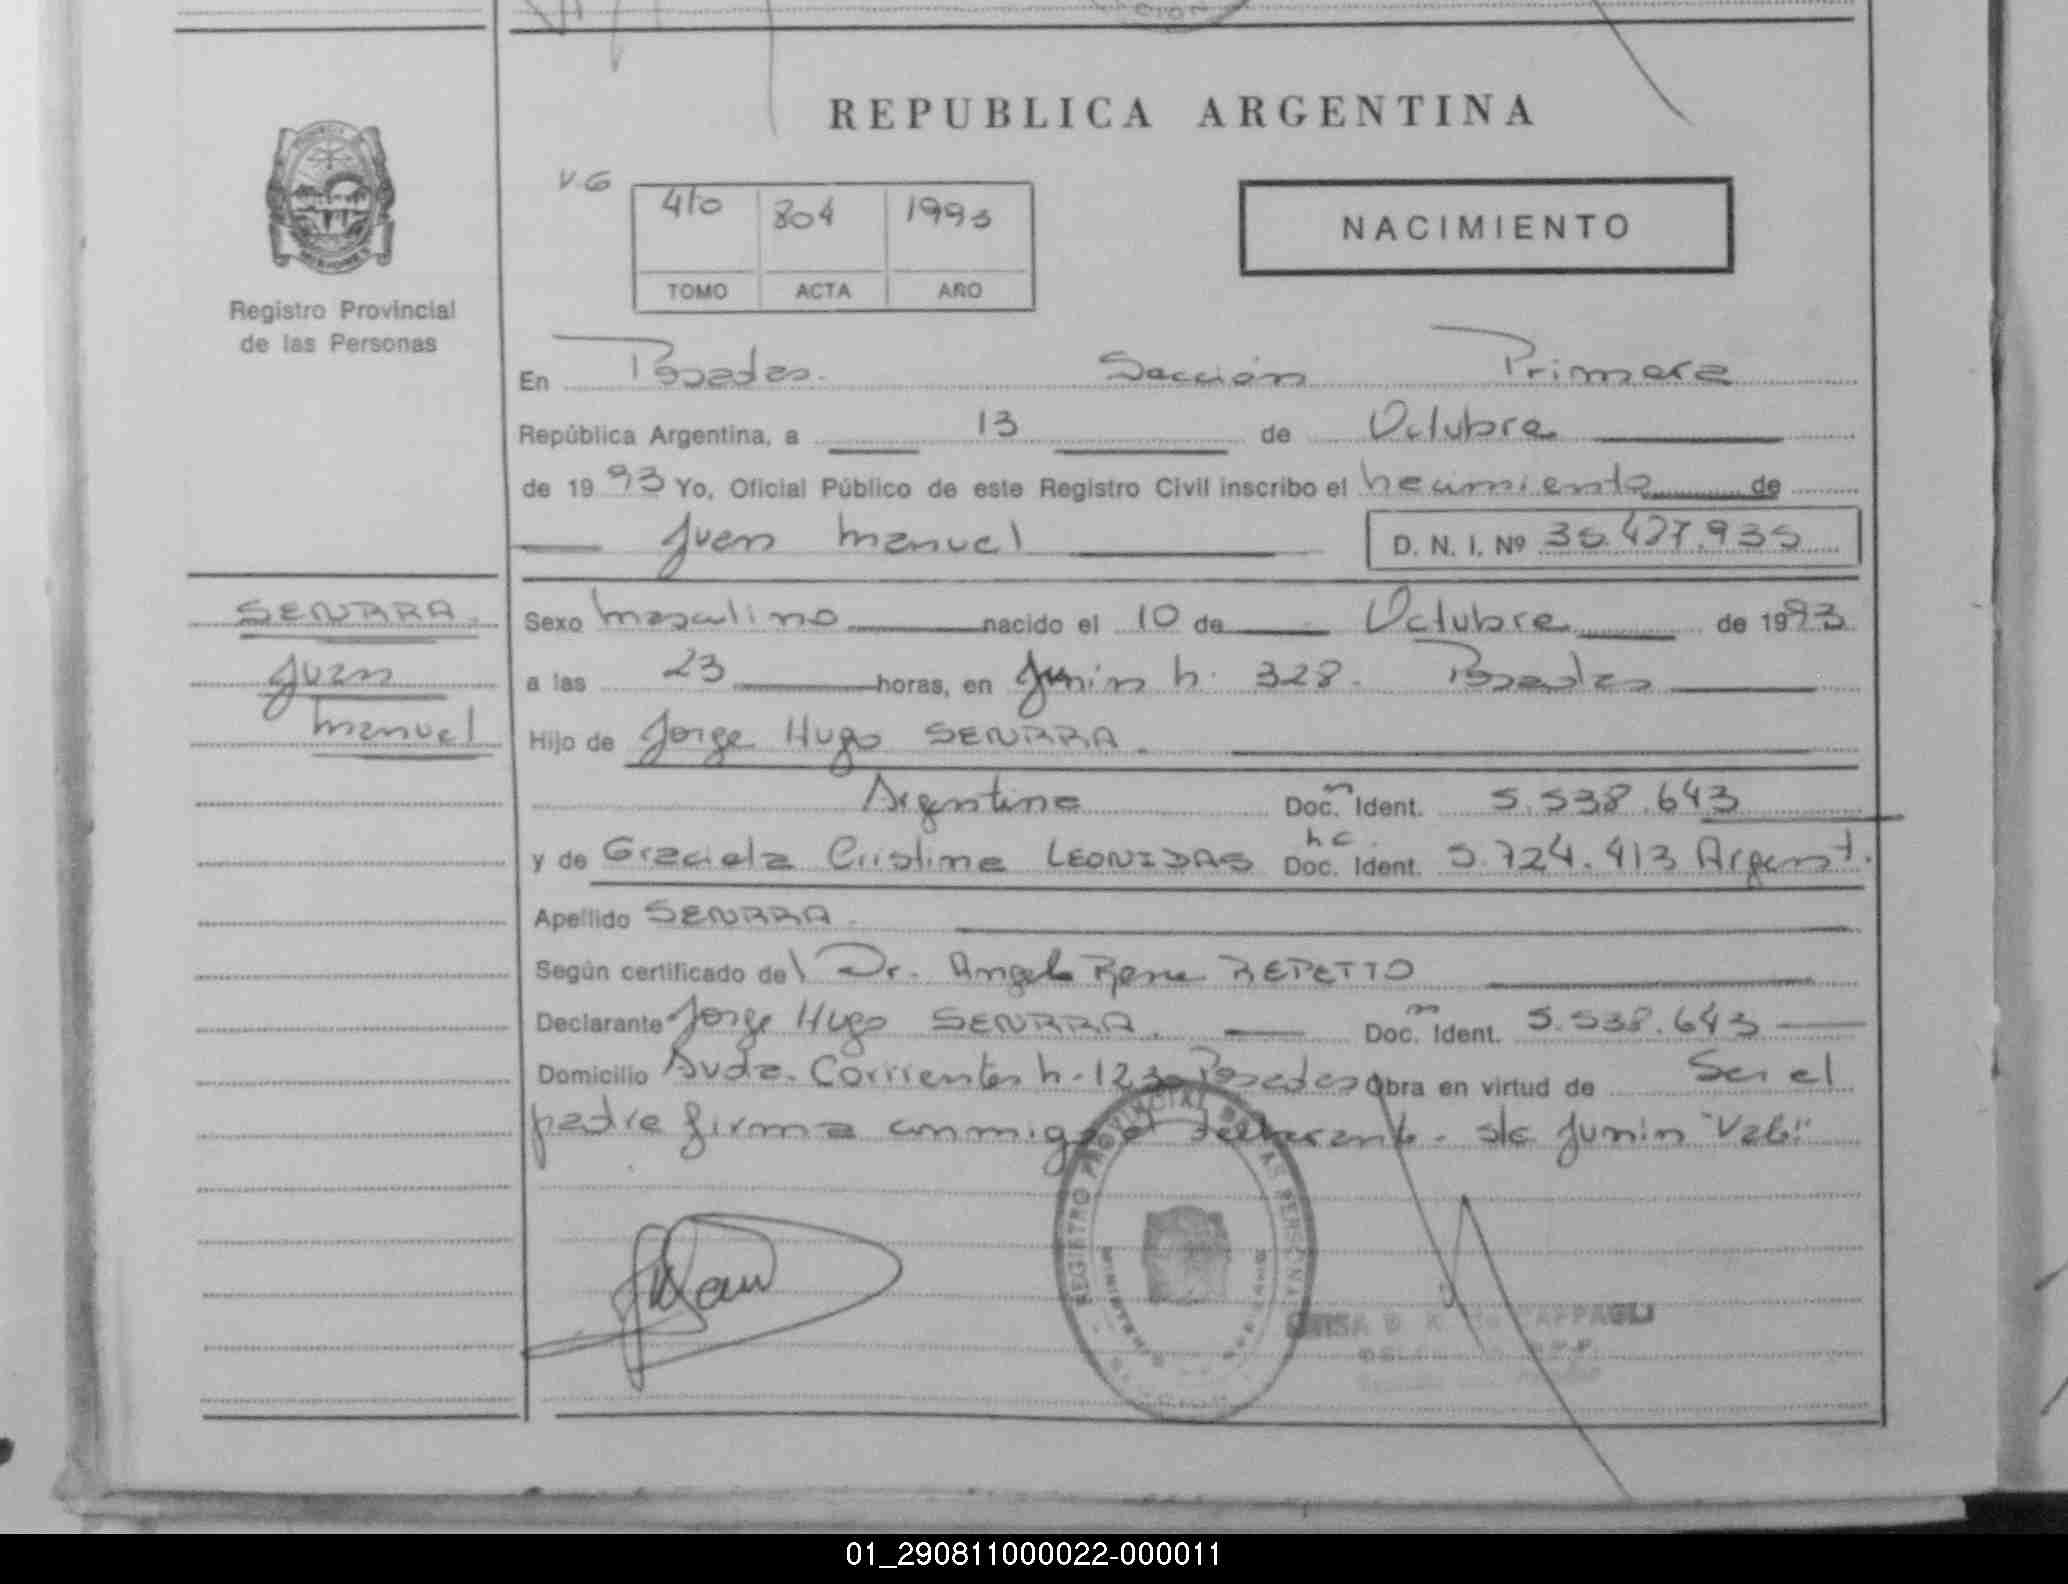 REPUBLICA ARGENTINA
V.G
4to 804 1993
TOMO ACTA AÑO
NACIMIENTO
Registro Provincial
de las Personas
En Posadas. Sección Primera
República Argentina, a 13 de Octubre
de 1993 Yo, Oficial Público de este Registro Civil inscribo el nacimiento de
Juan Manuel D. N. I. Nº 35.427.935
SENRRA.
Juan
Manuel
Sexo masculino nacido el 10 de Octubre de 1993
a las 23 horas, en Junín n. 328. Posadas
Hijo de Jorge Hugo SENRRA.
Argentino Doc. Ident. 5.538.643
y de Graciela Cristina LEONIDAS Doc. Ident. 5.724.413 Argent.
Apellido SENRRA.
Según certificado del Dr. Angel Rene REPETTO
Declarante Jorge Hugo SENRRA. Doc. Ident. 5.538.643
Domicilio Avda. Corrientes n. 123 Posadas Obra en virtud de Ser el
padre firma conmigo el declarante. s/c Junín "Vale"
REGISTRO PROVINCIAL DE LAS PERSONAS
MINISTERIO
TAPPAGLI
01_290811000022-000011